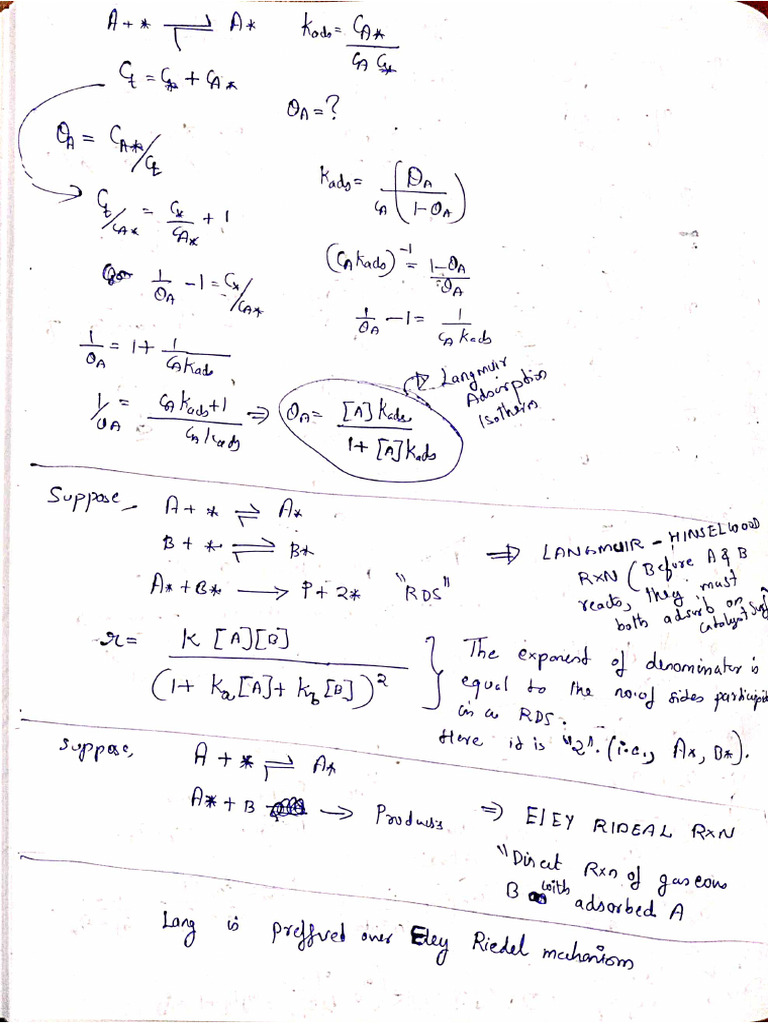 A + * ⇌ A*    K_ads = C_A* / C_A C_*
C_t = C_* + C_A*
θ_A = ?
θ_A = C_A* / C_t
K_ads = θ_A / C_A (1-θ_A)
C_t / C_A* = C_* / C_A* + 1
(C_A K_ads)^-1 = 1-θ_A / θ_A
1/θ_A - 1 = C_* / C_A*
1/θ_A - 1 = 1 / C_A K_ads
1/θ_A = 1 + 1 / C_A K_ads
1/θ_A = C_A K_ads + 1 / C_A K_ads ⇒ θ_A = [A] K_ads / 1 + [A] K_ads
→ Langmuir
Adsorption
Isotherm
Suppose, A + * ⇌ A*
B + * ⇌ B*
A* + B* → P + 2* "RDS"
⇒ LANGMUIR - HINSELWOOD
RXN (Before A & B
reacts, they must
both adsorb on
catalyst
r = K [A][B] / (1 + K_a[A] + K_b[B])^2
The exponent of denominator is
equal to the no. of sides
in a RDS.
Here it is "2". (i.e., A*, B*).
Suppose, A + * ⇌ A*
A* + B → Products ⇒ ElEY RIDEAL RXN
"Direct Rxn of gaseous
B with adsorbed A
Lang is preffured over Eley Riedel mechanism